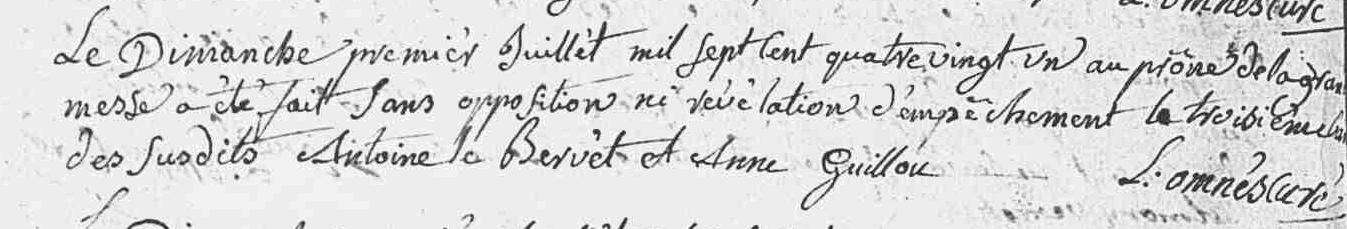 L. omnes Curé
Le Dimanche premier Juillet mil sept Cent quatre vingt un au prône de la gran
messe a été fait sans opposition ni révélation d'empêchement le troisiême ban
des susdits Antoine le Bervèt et Anne Guillou
L. omnés Curé